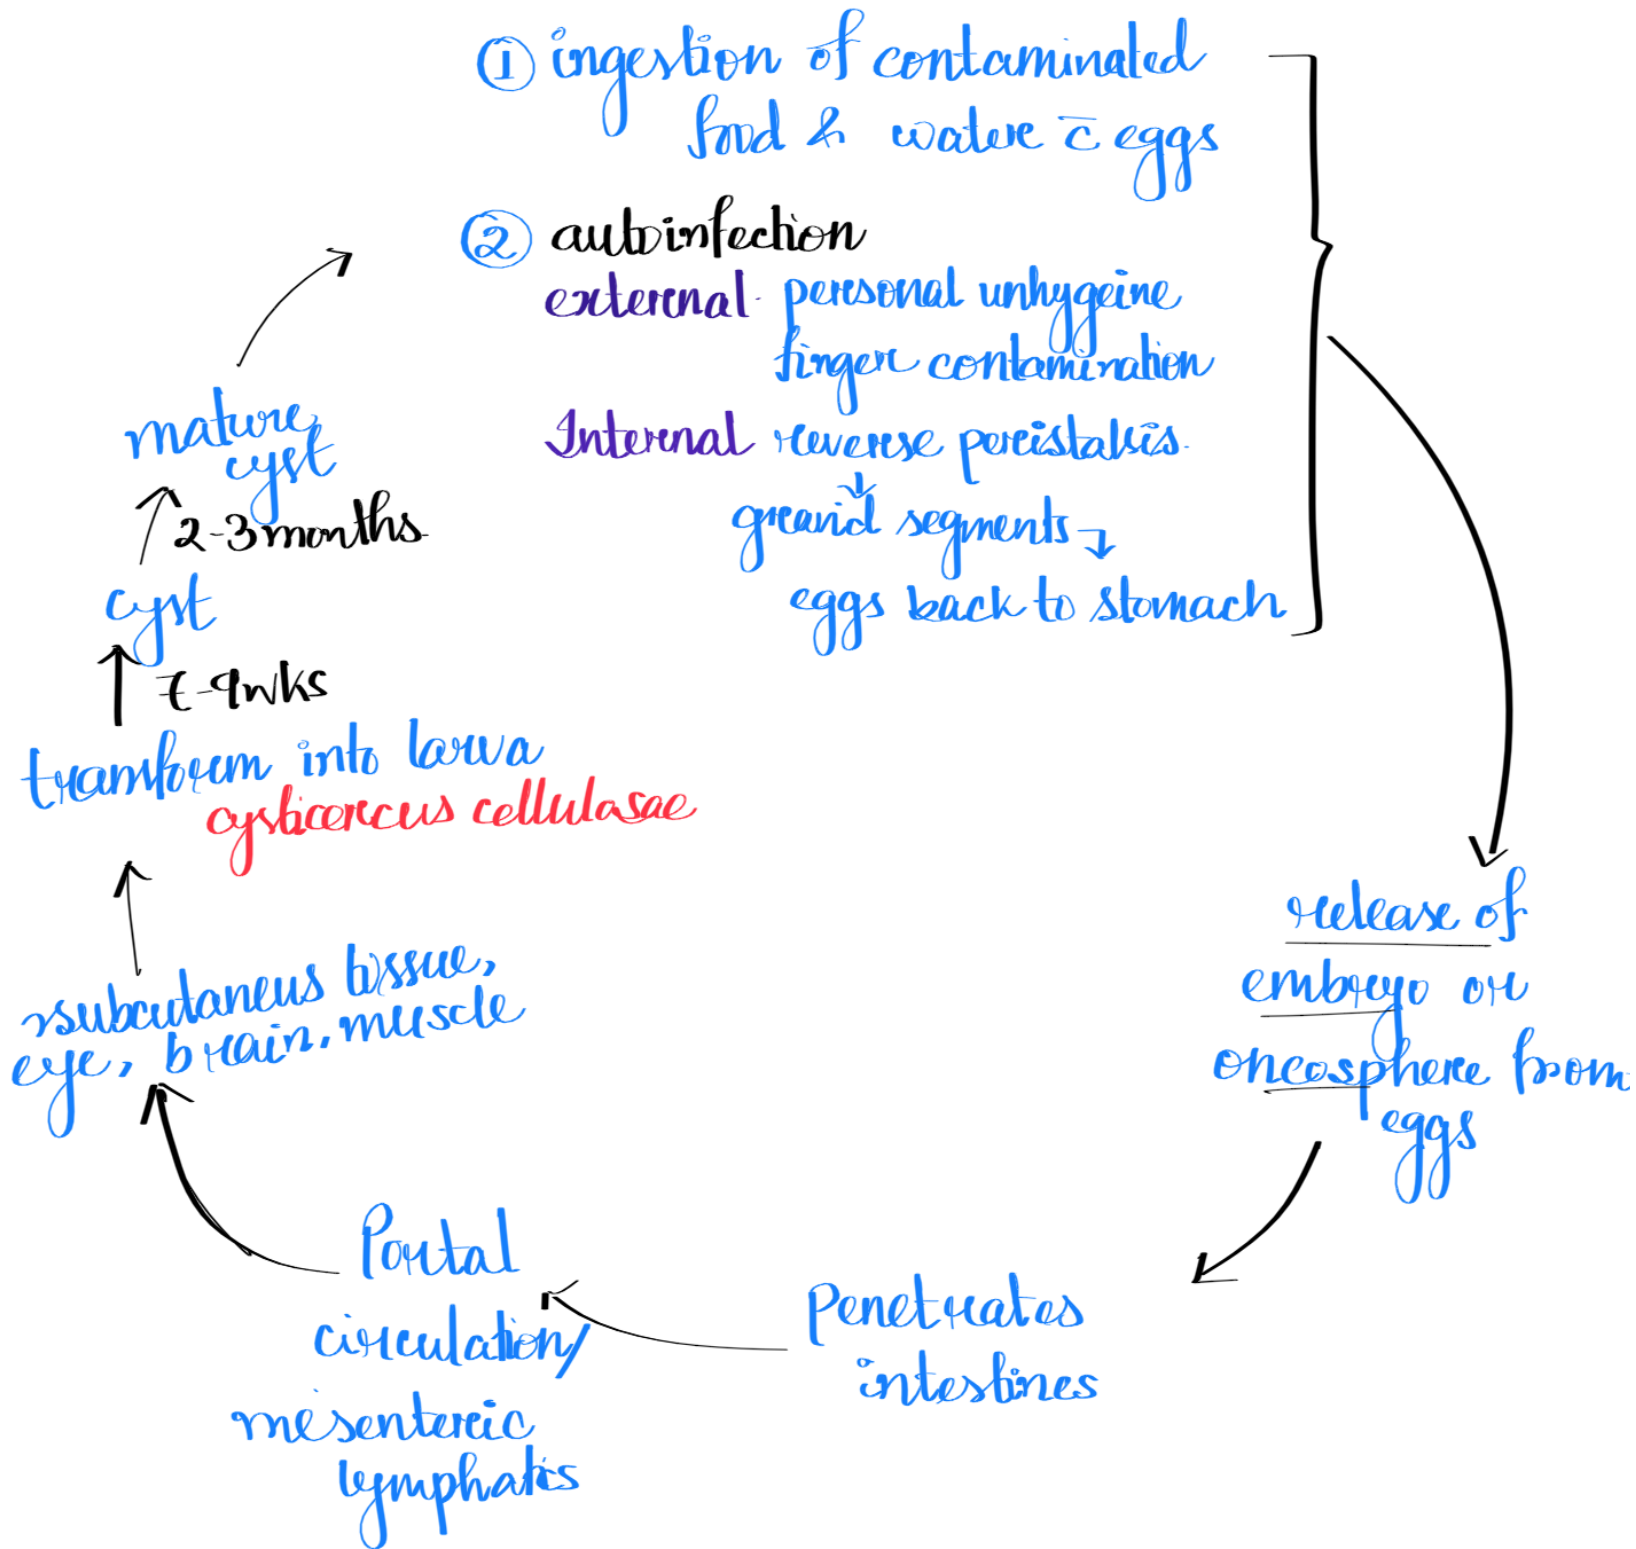 ① ingestion of contaminated
food & water c̄ eggs
② autoinfection
external. personal unhygeine
finger contamination
Internal reverse peristalsis.
gravid segments
eggs back to stomach
release of
embryo or
oncosphere from
eggs
Penetrates
intestines
Portal
circulation/
mesenteric
lymphatics
subcutaneus tissue,
eye, brain, muscle
transform into larva
cysticercus cellulasae
7-9wks
cyst
2-3 months
mature
cyst